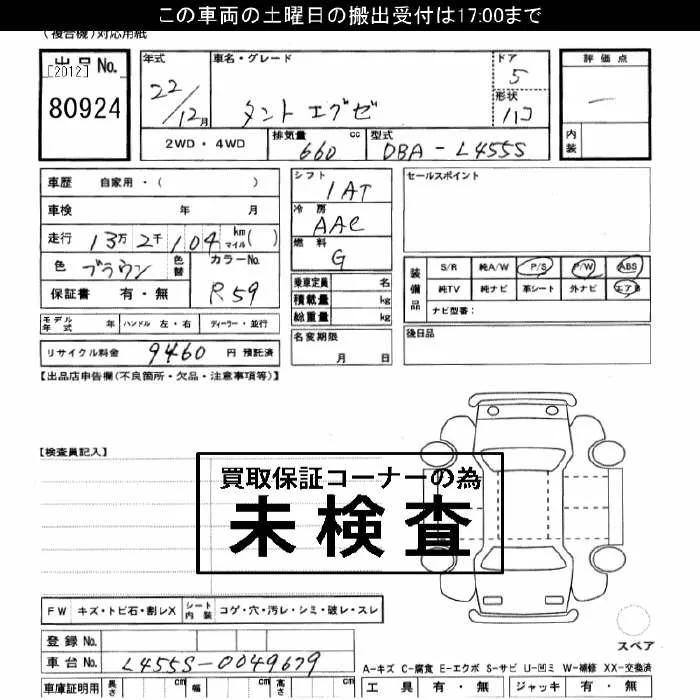 この車両の土曜日の搬出受付は17:00まで
(複合機)対応用紙
出品No. [2012]
80924
年式 22/12月
車名・グレード
タントエグゼ
ドア 5
形状 ハコ
評価点
ー
内装
2WD・4WD
排気量 660 cc
型式 DBA-L455S
車歴 自家用・( )
車検 年 月
走行 13万2千104 km マイル( )
色 ブラウン 色替 カラーNo. R59
保証書 有・無
シフト 1AT
冷房 AAC
燃料 G
乗車定員 名
積載量 kg
総重量 kg
名変期限
月 日
セールスポイント
装備品
S/R 純A/W P/S P/W ABS
純TV 純ナビ 革シート 外ナビ エアB
ナビ型番:
後日品
モデル年式 年 ハンドル 左・右 ディーラー・並行
リサイクル料金 9460 円 預託済
【出品店申告欄(不良箇所・欠品・注意事項等)】
【検査員記入】
買取保証コーナーの為
未検査
FW キズ・トビ石・割レX シート内装 コゲ・穴・汚レ・シミ・破レ・スレ
登録No.
車台No. L455S-0049679
スペア
A-キズ C-腐食 E-エクボ S-サビ U-凹ミ W-補修 XX-交換済
車庫証明用 長さ cm 幅 cm 高さ cm
工具 有・無 ジャッキ 有・無